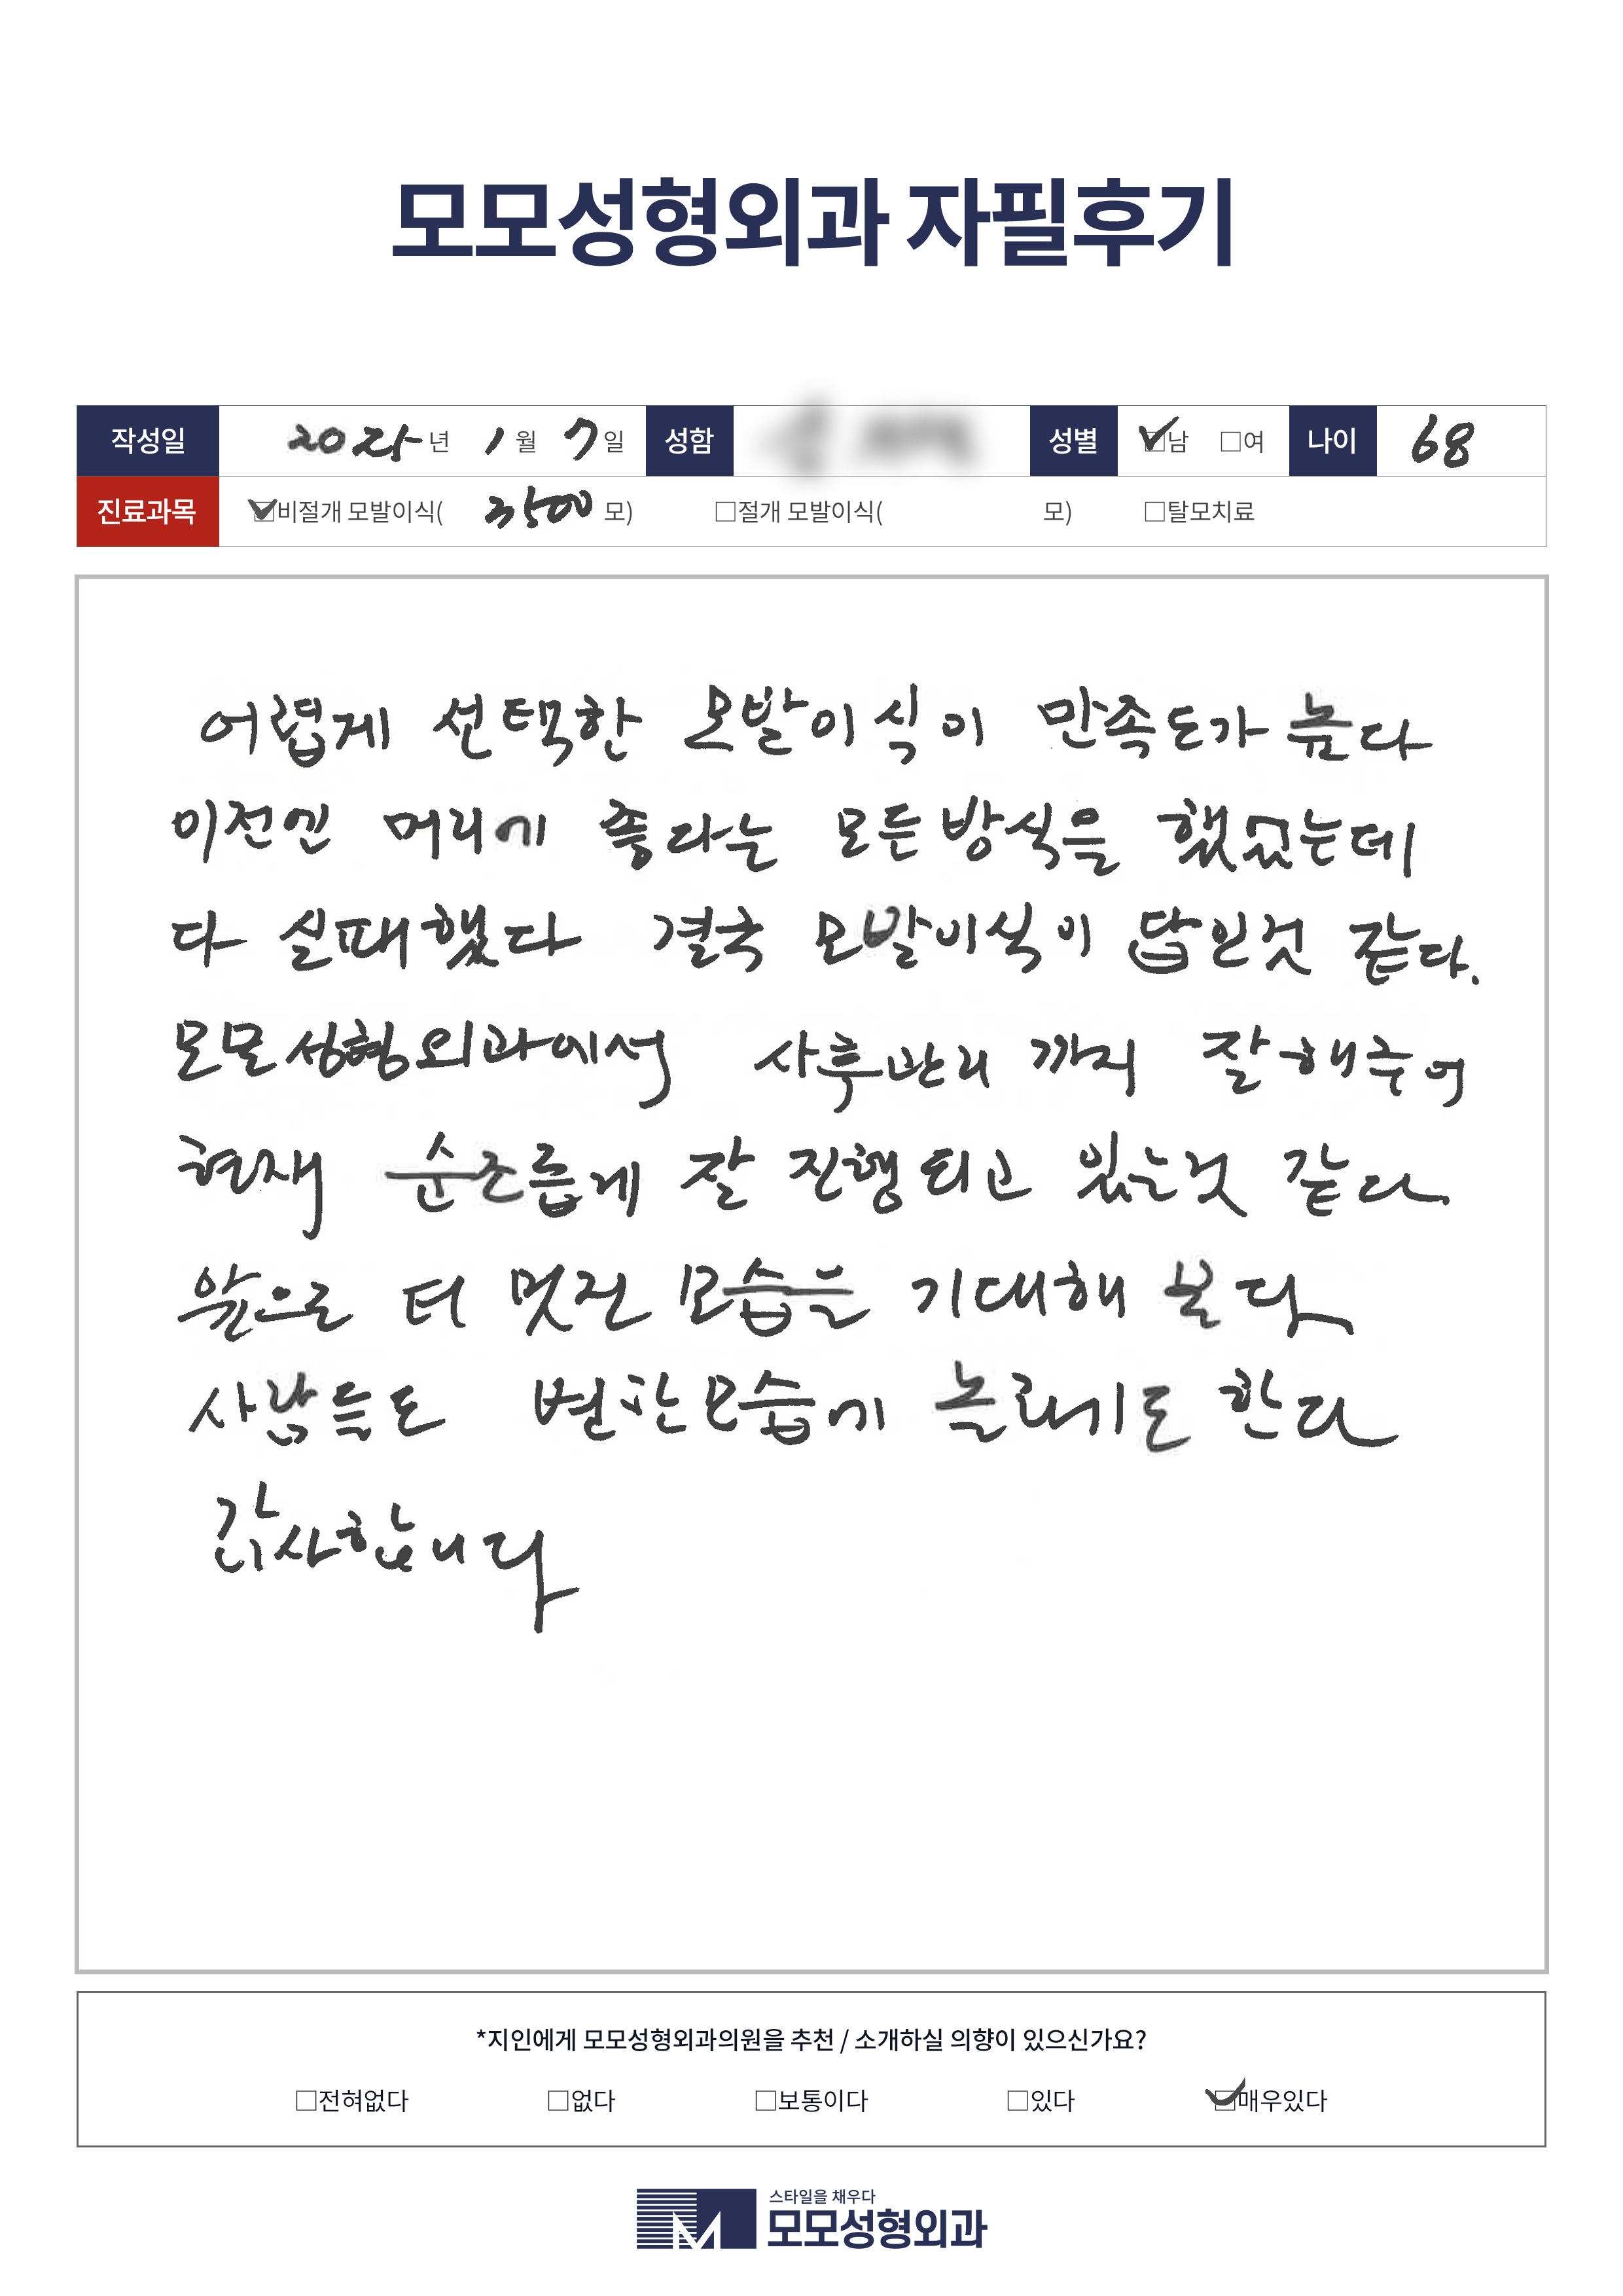 모모성형외과 자필후기
작성일 2025년 1월 7일 성함 성별 ☑남 □여 나이 68
진료과목 ☑비절개 모발이식( 3500 모) □절개 모발이식( 모) □탈모치료
어렵게 선택한 모발이식이 만족도가 높다
이전엔 머리에 좋다는 모든방식을 했었는데
다 실패했다 결국 모발이식이 답인것 같다.
모모성형외과에서 사후관리 까지 잘해주어
현재 순조롭게 잘 진행되고 있는것 같다.
앞으로 더 멋진 모습을 기대해 본다
사람들도 변한모습에 놀래기도 한다
감사합니다
*지인에게 모모성형외과의원을 추천 / 소개하실 의향이 있으신가요?
□전혀없다 □없다 □보통이다 □있다 ☑매우있다
스타일을 채우다
모모성형외과